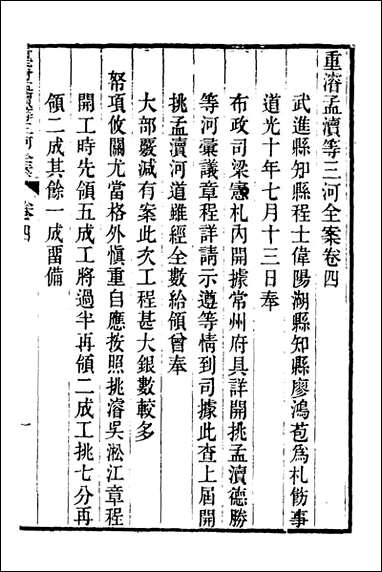 重濬孟瀆等三河全案卷四
武進縣知縣程士偉陽湖縣知縣廖鴻苞爲札飭事
道光十年七月十三日奉
布政司梁憲札內開據常州府具詳開挑孟瀆德勝
等河彙議章程詳請示遵等情到司據此查上屆開
挑孟瀆河道雖經全數給領曾奉
大部覈減有案此次工程甚大銀數較多
帑項攸關尤當格外愼重自應按照挑濬吳淞江章程
開工時先領五成工將過半再領二成工挑七分再
領二成其餘一成畱備
重濬孟瀆等三河全案
卷四
一